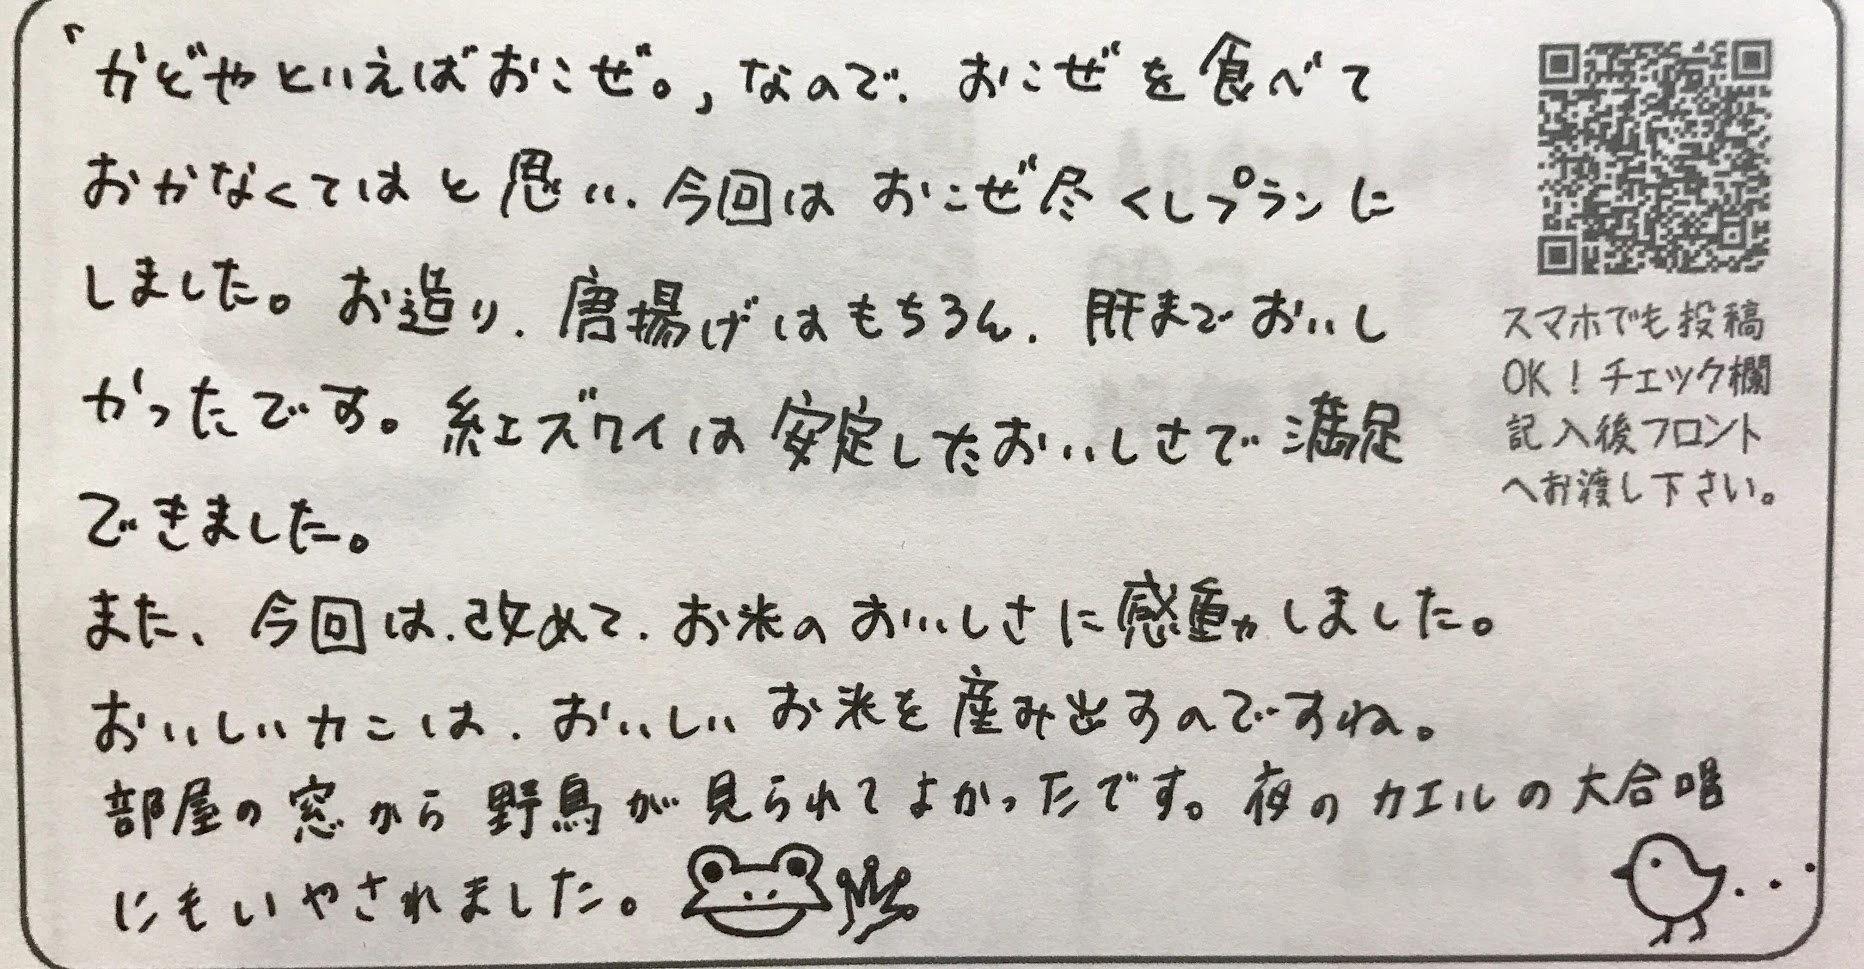 「かどやといえばおこぜ。」なので、おこぜを食べて
おかなくてはと思い、今回はおこぜ尽くしプランに
しました。お造り、唐揚げはもちろん、肝までおいし
かったです。紅ズワイは安定したおいしさで満足
できました。
また、今回は、改めて、お米のおいしさに感動しました。
おいしいカニは、おいしいお米を産み出すのですね。
部屋の窓から野鳥が見られてよかったです。夜のカエルの大合唱
にもいやされました。
スマホでも投稿
OK！チェック欄
記入後フロント
へお渡し下さい。